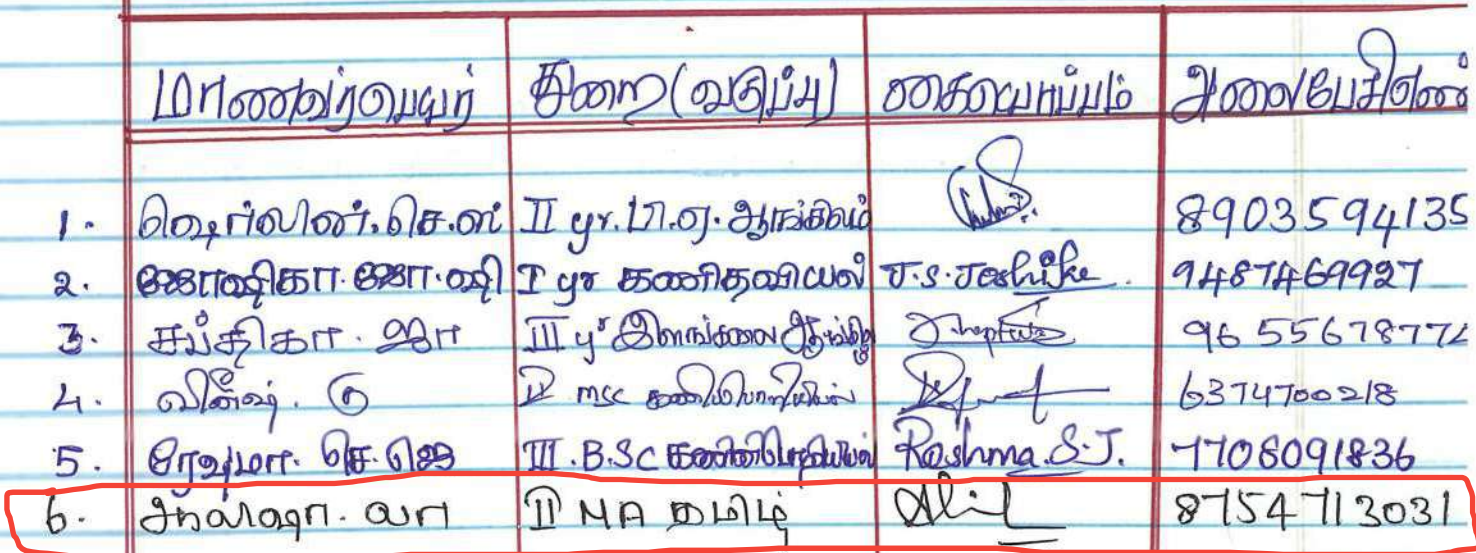 மாணவர்பெயர் துறை (வகுப்பு) கையொப்பம் அலைபேசிஎண்
1. ஷெர்லின். செ. எஸ் II yr. பி.ஏ. ஆங்கிலம் 8903594135
2. ஜோஷிகா. ஜோ. ஷி I yr கணிதவியல் J.S. Joshika 9487469927
3. சப்திகா. ஜா III yr இளங்கலை ஆங்கிலம் 965567877
4. வினீஷ். கு II msc கணிப்பொறியியல் 6374700218
5. ரேஷ்மா. செ. ஜெ III. B.SC கணினிப்பொறியியல் Reshma.S.J. 7708091836
6. வா II MA தமிழ் 8754713031